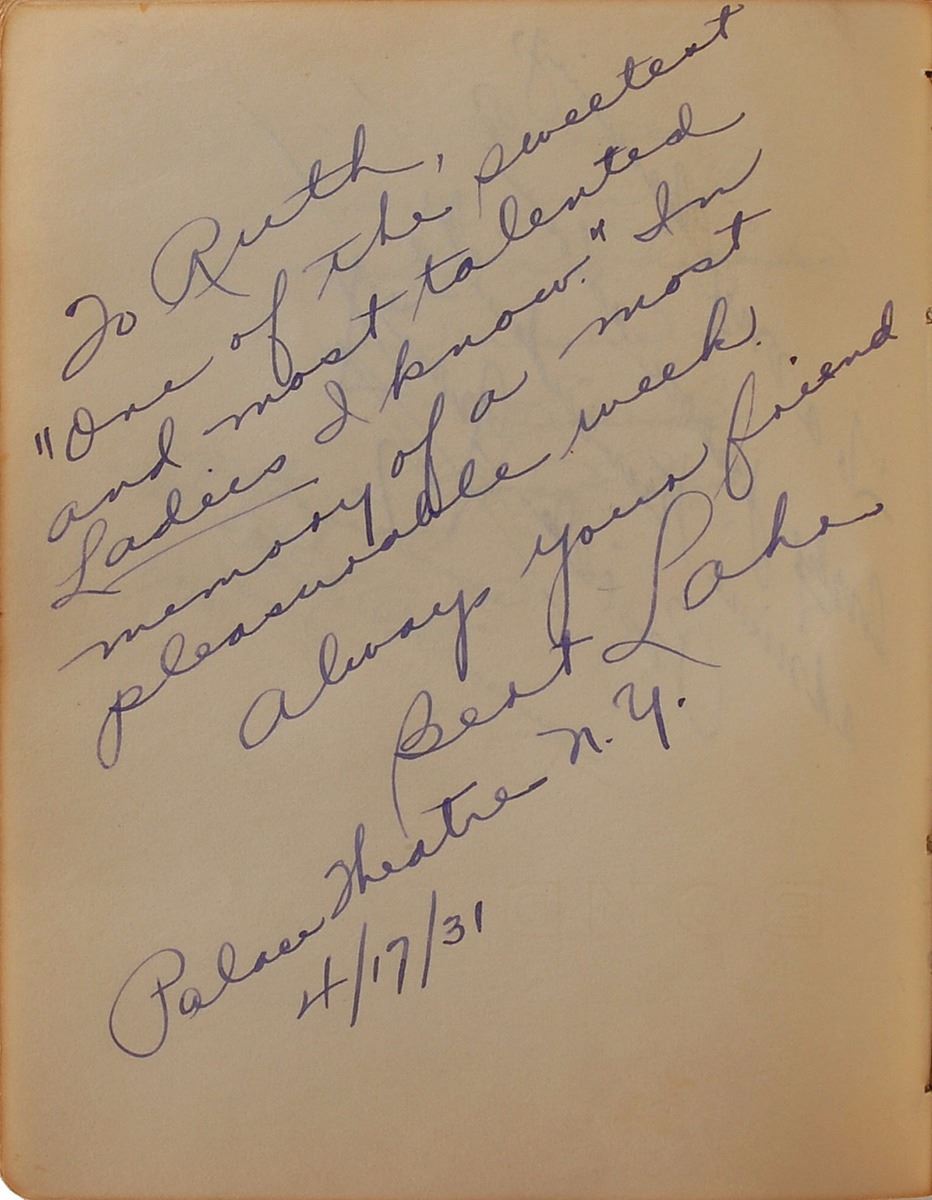 To Ruth,
"One of the sweetest
and most talented
Ladies I know." In
memory of a most
pleasurable week.
Always your friend
Bert Lahr
Palace Theatre N.Y.
4/17/31